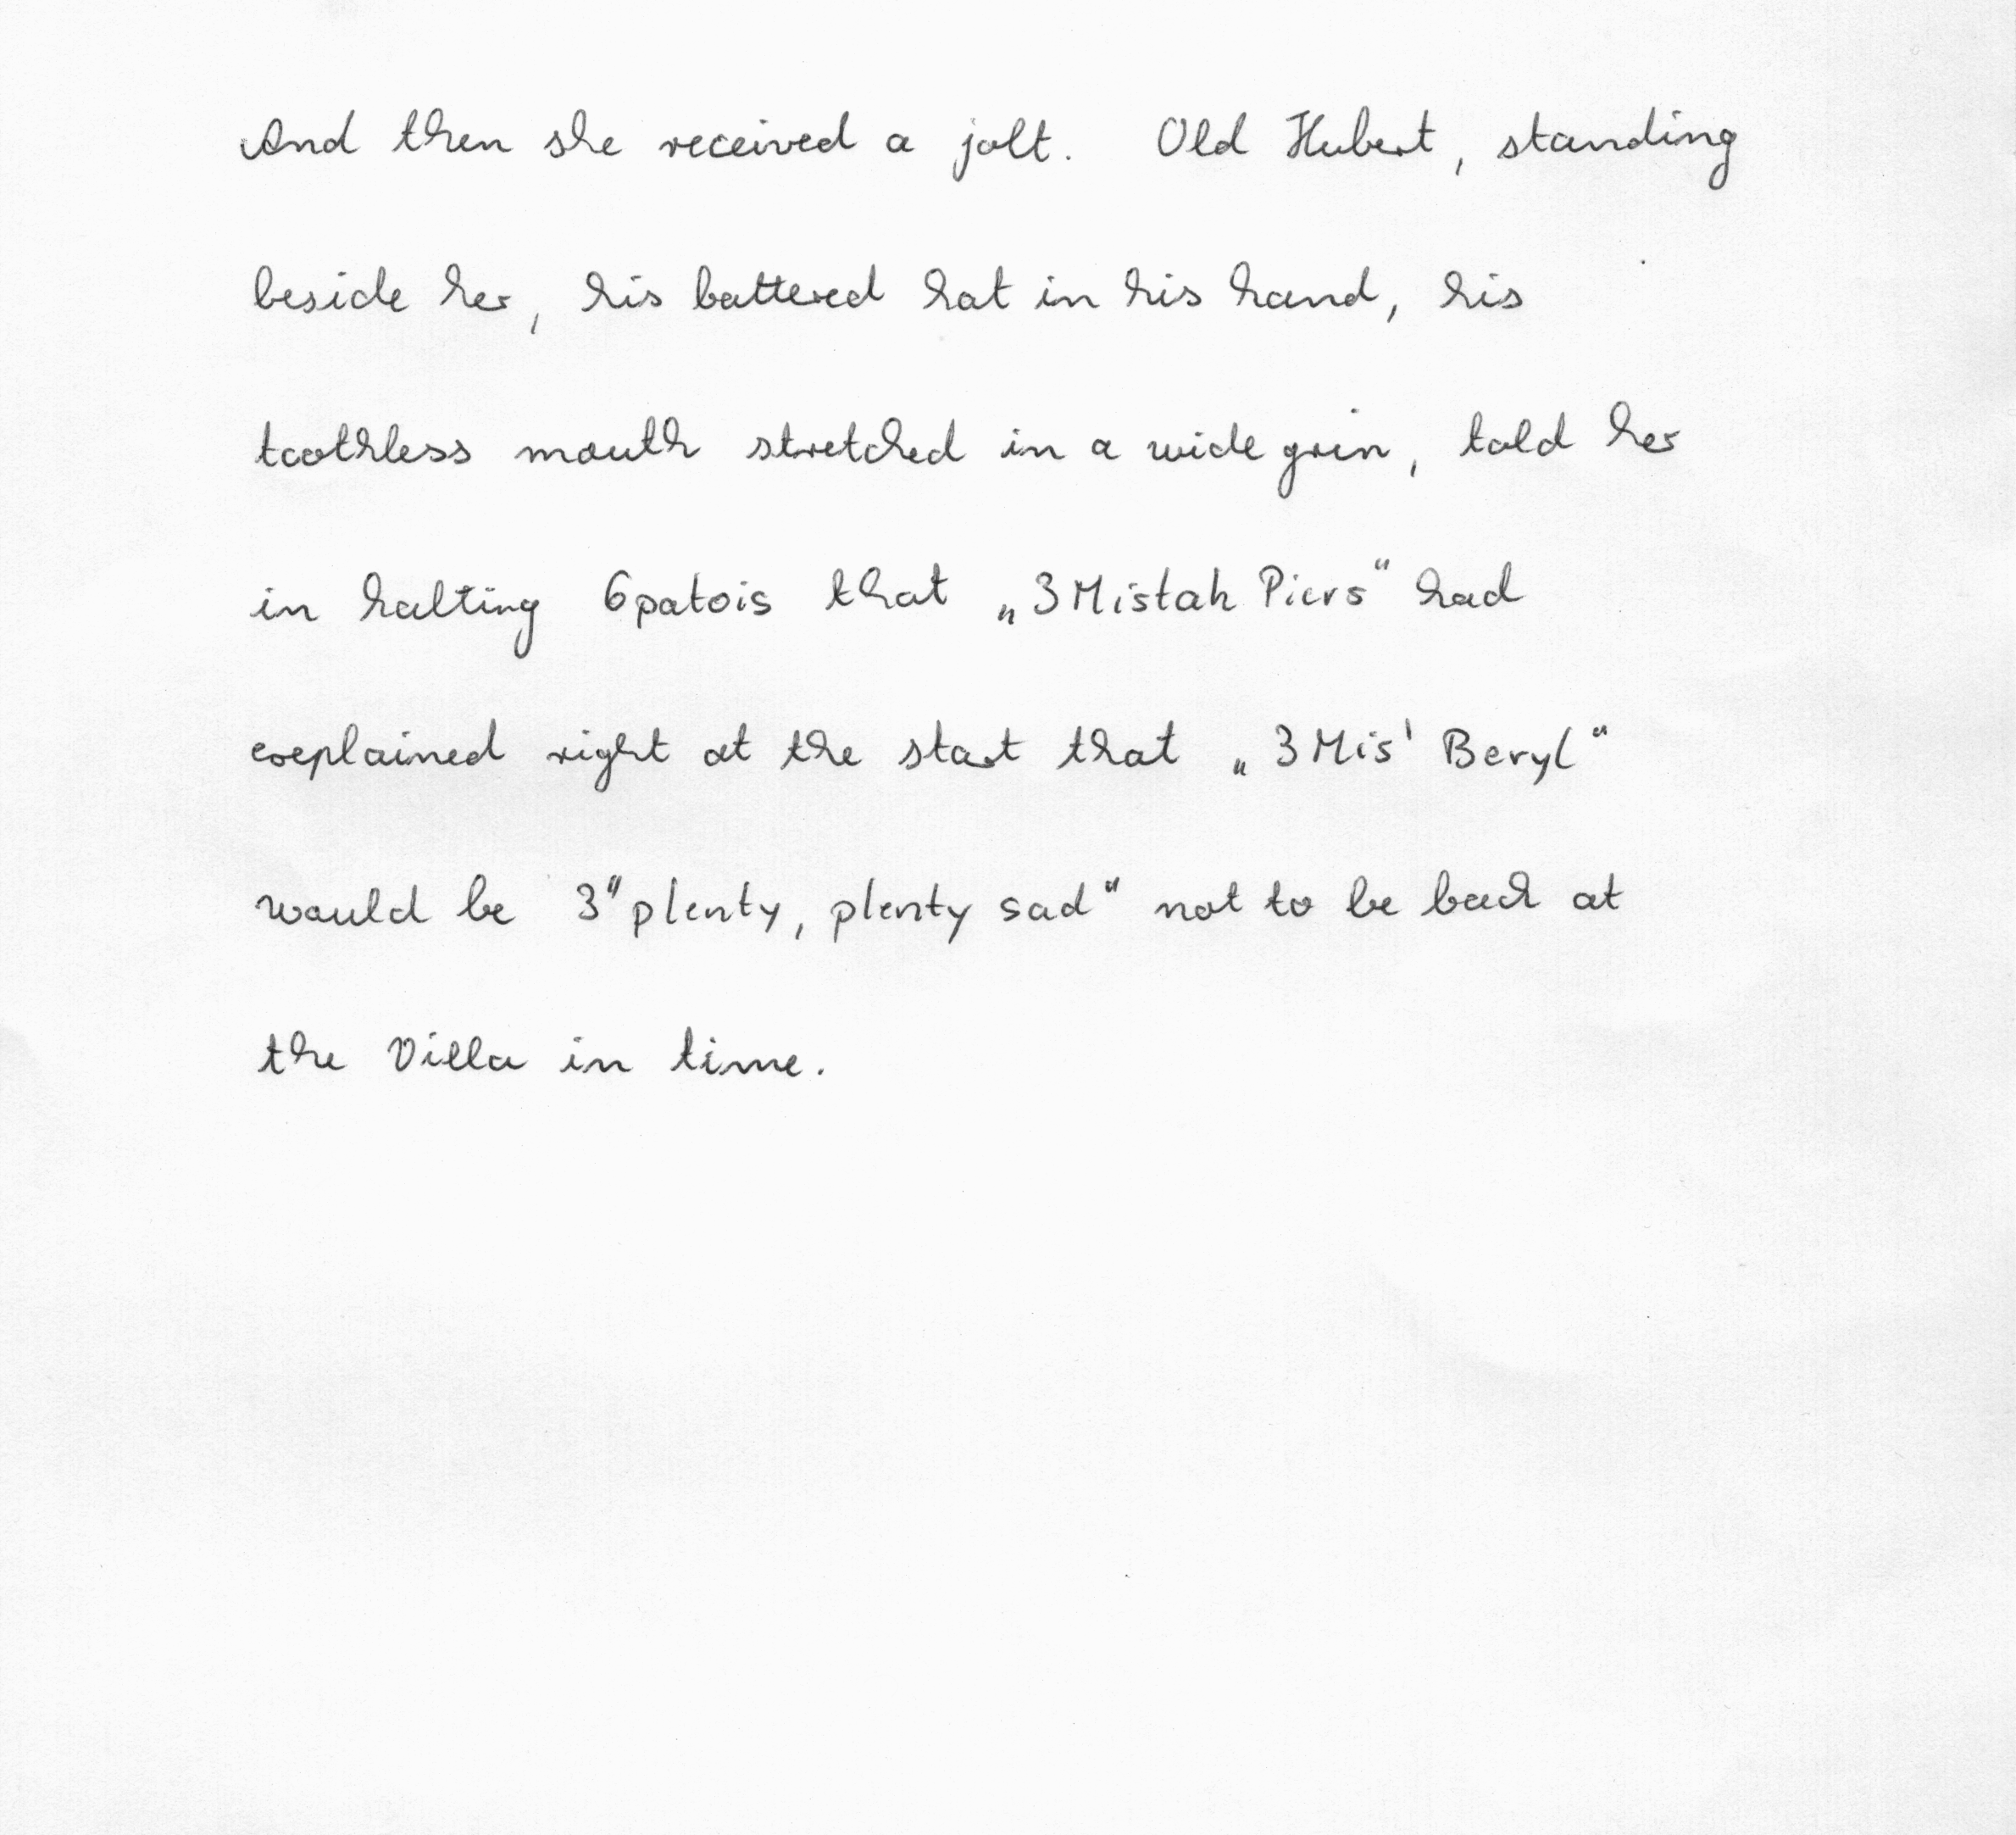 And then she received a jolt. Old Hubert, standing
beside her, his battered hat in his hand, his
toothless mouth stretched in a wide grin, told her
in halting 6patois that „3Mistah Piers“ had
explained right at the start that „3Mis' Beryl“
would be 3"plenty, plenty sad“ not to be back at
the Villa in time.